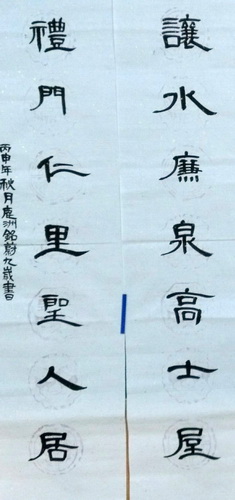 讓水廉泉高士屋
禮門仁里聖人居
丙申年秋月鹿洲銘蔚九歲書